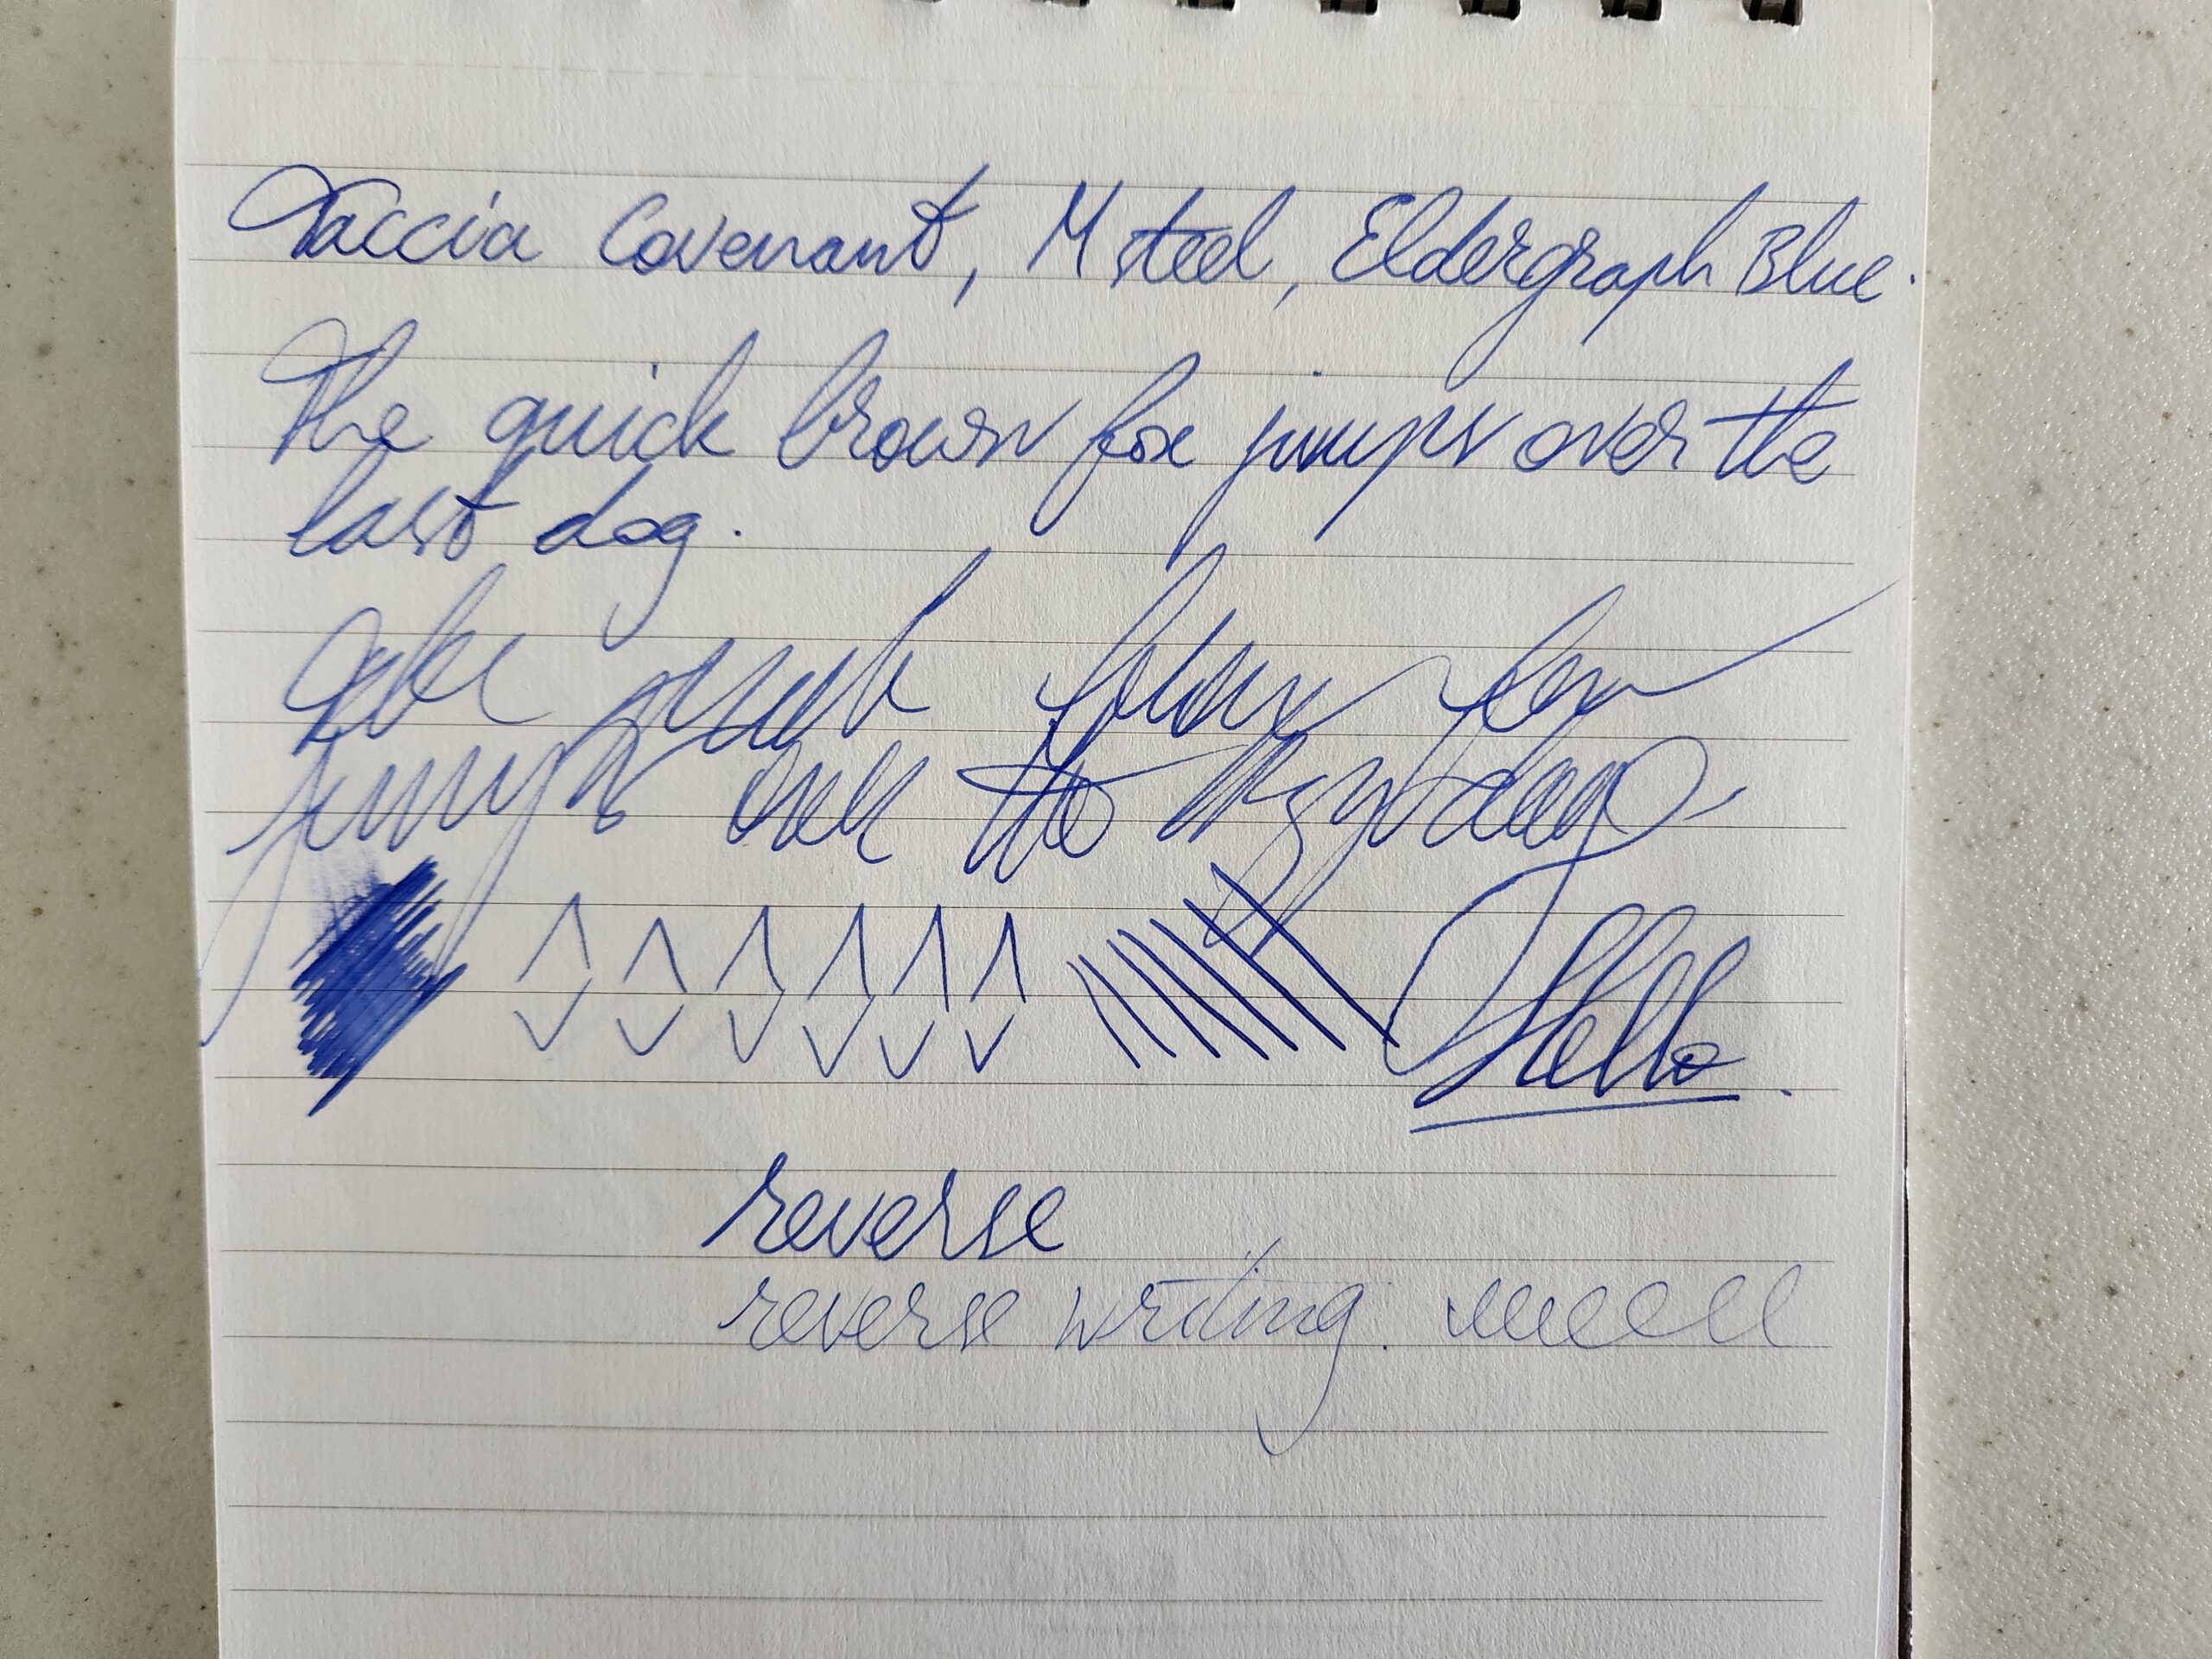 Taccia Covenant, M steel, Eldergraph Blue.
The quick brown fox jumps over the
last dog.
The quick brown fox
jumps over the lazy dog.
Hello.
reverse
reverse writing.